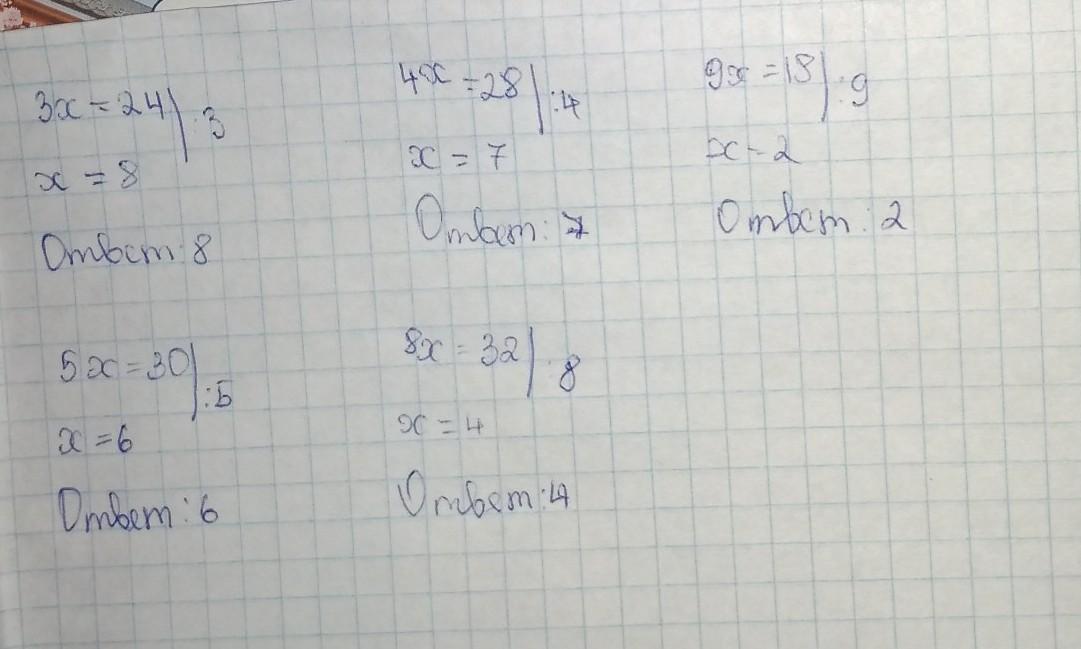 3x = 24 | :3
x = 8
Ответ: 8
4x = 28 | :4
x = 7
Ответ: 7
9x = 18 | :9
x - 2
Ответ: 2
5x = 30 | :5
x = 6
Ответ: 6
8x = 32 | :8
x = 4
Ответ: 4